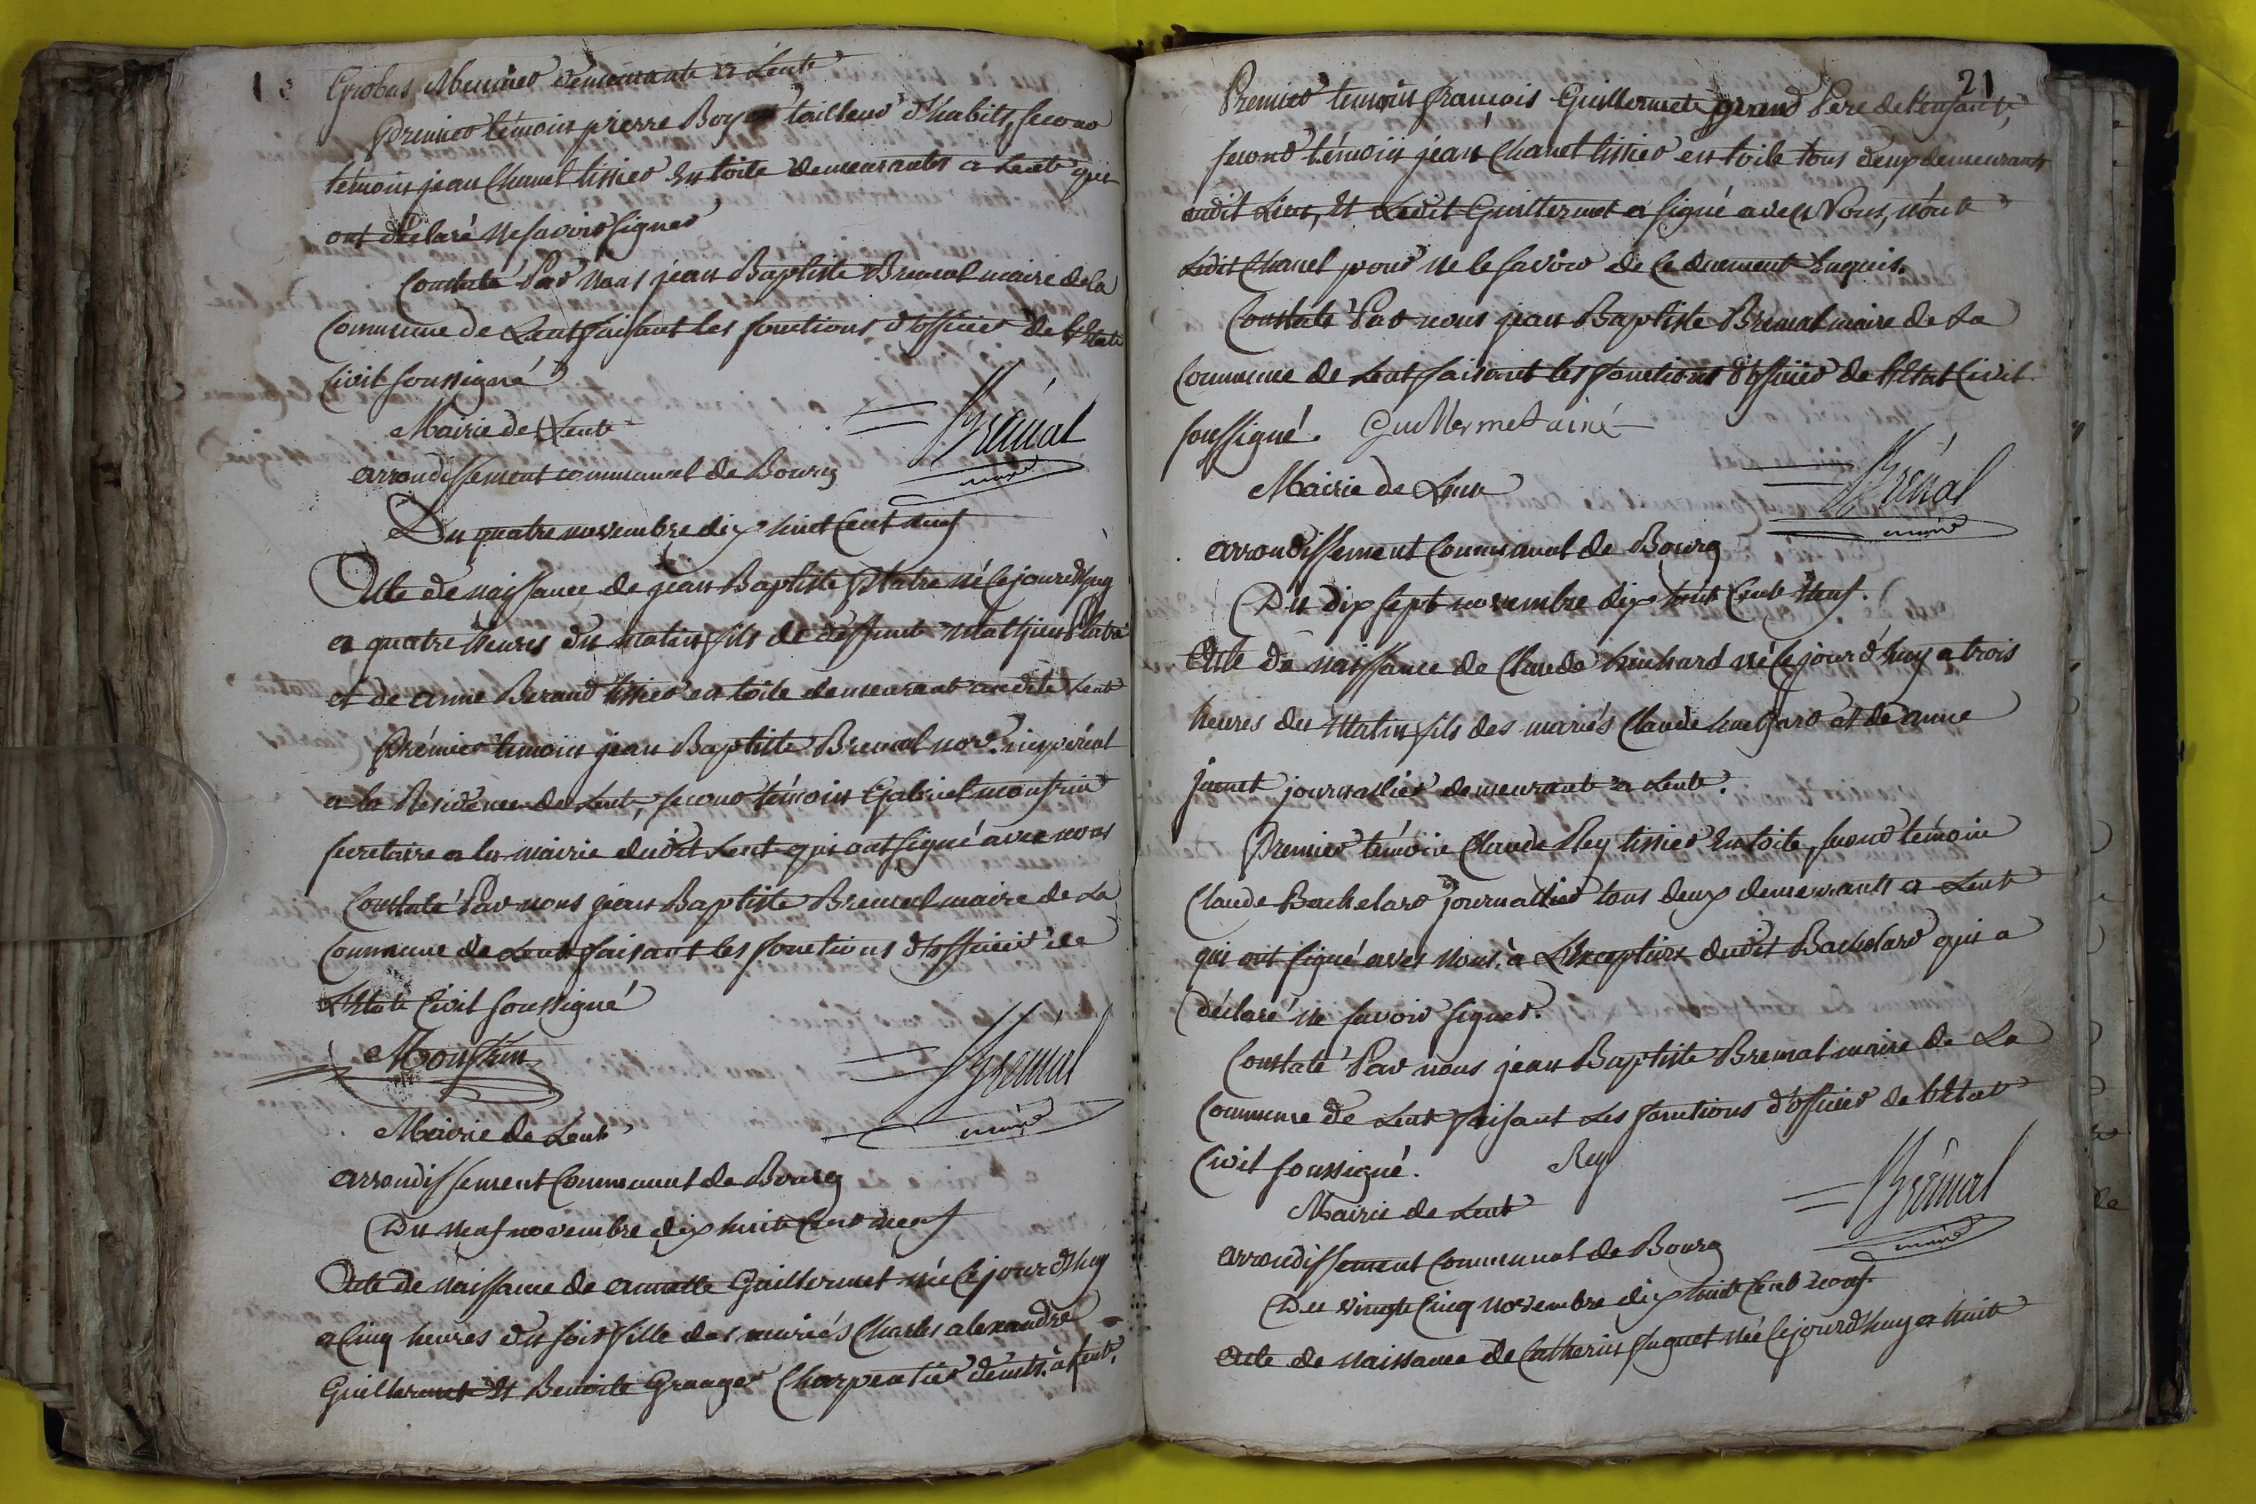 Grobas Meunier demeurante a Lent
Premier témoin pierre Boyer tailleur d'habits, second
témoin jean Chanel tissier En toile demeurants a Lent qui
ont déclaré ne savoir signer
Constaté Par nous jean Baptiste Brenal maire de la
Commune de Lent faisant les fonctions d'officier de l'Etat
Civil soussigné
Brenal
maire
Mairie de Lent
arrondissement communal de Bourg
Du quatre novembre dix huit Cent neuf
Acte de naissance de jean Baptiste Platre né Cejourd'huy
a quatre heures du matin fils de deffunt Mathieu
et de anne Beraud tissier en toile demeurant audit Lent
Prémier temoin jean Baptiste Brenal impérial
a la Résidence de Lent, second témoin Gabriel monfrin
secretaire a la mairie dudit Lent qui ont signé avec nous
Constaté Par nous jean Baptiste Brenal maire de La
Commune de Lent faisant les fonctions d'officier de
L'Etat Civil soussigné
Monfrin
Brenal
maire
Mairie de Lent
arrondissement Communal de Bourg
Du neuf novembre dix huit Cent neuf
Acte de naissance de Guillermet née Cejourd'huy
a Cinq heures du soir fille des mariés Charles alexandre
Guillermet Et Benoite Granger Charpentier demts. à Lent.
21
Premier temoin françois Guillermet grand Pere de l'enfant,
second témoin jean Chanel tissier en toile tous deux demeurants
audit Lieu, Et Ledit Guillermet a signé avec Nous, non
Ledit Chanel pour ne le savoir de Ce duement Enquis.
Constaté Par nous jean Baptiste Brenal maire de La
Commune de Lent faisant les fonctions d'officier de l'Etat Civil
soussigné. Guillermet ainé
Brenal
maire
Mairie de Lent
arrondissement Communal de Bourg
Du dix sept novembre dix huit Cent Neuf.
Acte de naissance de Claude né Cejourd'huy a trois
heures du Matin fils des mariés Claude et de anne
journallier demeurant a Lent.
Premier témoin Claude Rey tissier En toile, second témoin
Claude Bachelard journallier tous deux demeurants a Lent
qui ont signé avec Nous, à L'exception dudit Bachelard qui a
déclaré ne savoir signer.
Constaté Par nous jean Baptiste Brenal maire de La
Commune de Lent faisant Les fonctions d'officier de l'Etat
Civil soussigné. Rey
Brenal
maire
Mairie de Lent
arrondissement Communal de Bourg
Du vingt Cinq novembre dix huit Cent neuf.
Acte de naissance de Catherine née Cejourd'huy a huit